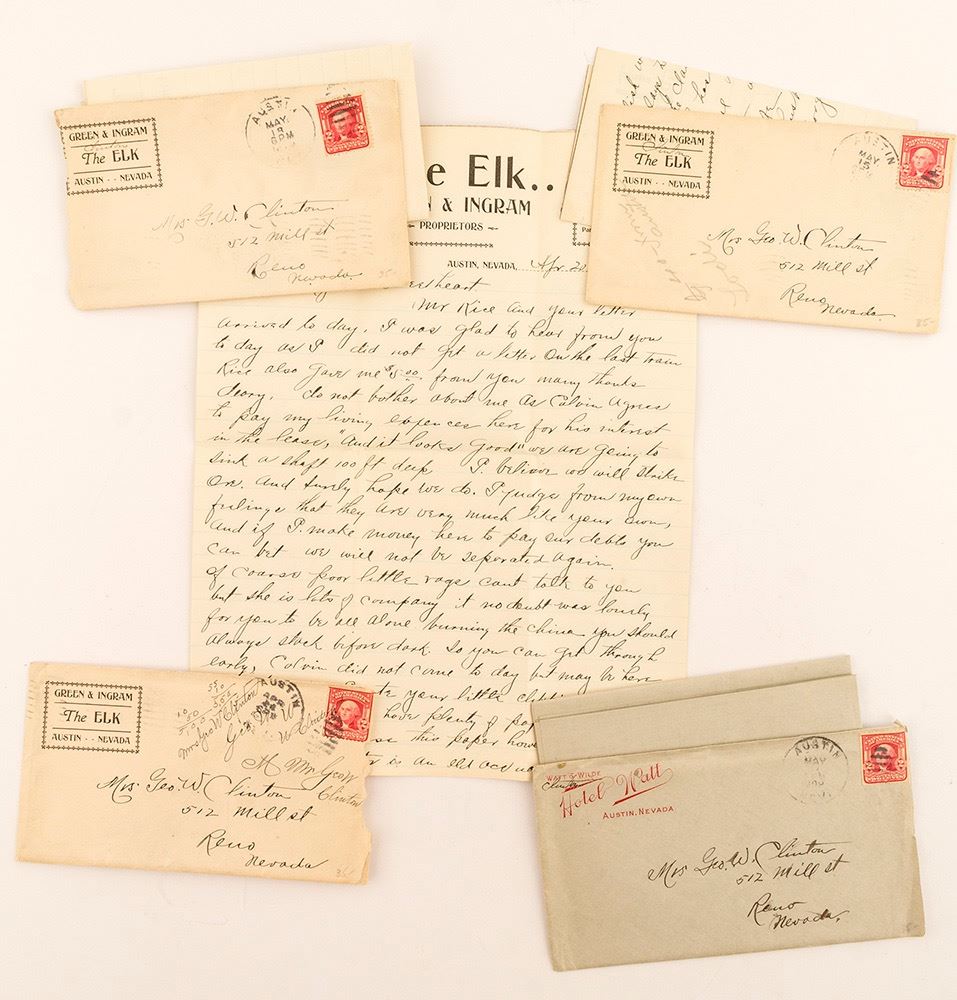 GREEN & INGRAM
Clinton
The ELK
AUSTIN - - NEVADA
AUSTIN
MAY.
18
6 PM
Mrs G.W. Clinton
512 Mill st
Reno
Nevada
GREEN & INGRAM
Clinton
The ELK
AUSTIN - - NEVADA
AUSTIN
MAY.
15
Mrs Geo. W. Clinton
512 Mill st
Reno
Nevada.
e Elk..
& INGRAM
PROPRIETORS
AUSTIN, NEVADA, Apr. 22
eetheart
Mr Rice and your letter
arrived to day. I was glad to hear from you
to day as I did not get a letter on the last train
Rice also gave me $5.00 from you many thanks
deary, do not bother about me as Colvin agrees
to pay my living expences here for his interest
in the lease, "And it looks good" we are going to
sink a shaft 100 ft deep, I believe we will strike
Ore. and surely hope we do. I judge from my own
feelings that they are very much like your own,
and if I make money here to pay our debts you
can bet we will not be seperated again.
of coarse poor little rags cant talk to you
but she is lots of company it no doubt was lonely
for you to be all alone burning the china you should
always stack before dark. So you can get through
early, Colvin did not come to day but may be here
your little
have plenty of pa
ss this paper how
is an old
GREEN & INGRAM
The ELK
AUSTIN - - NEVADA
AUSTIN
APR
Mrs Geo W Clinton
Geo W
M Mrs Geo W
Clinton
Mrs Geo. W. Clinton
512 Mill st
Reno
Nevada
WATT & WILDE
Clinton
Hotel Watt
AUSTIN, NEVADA
AUSTIN
MAY
Mrs Geo. W. Clinton
512 Mill st
Reno
Nevada,